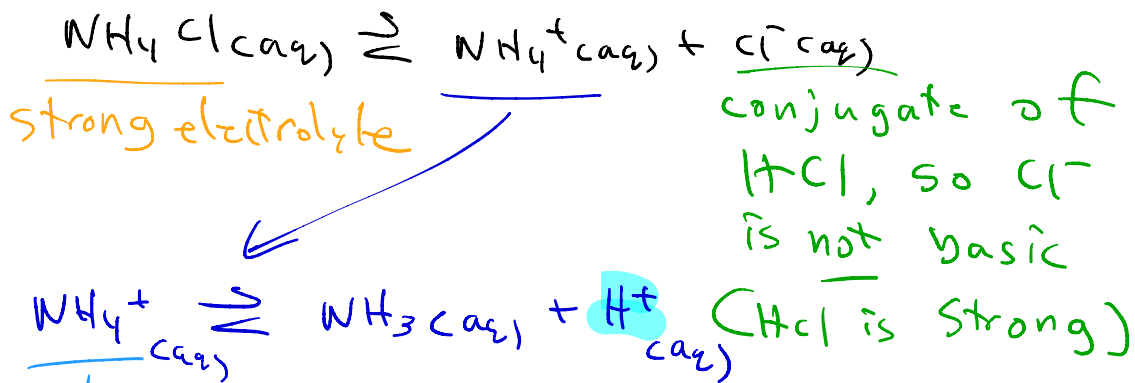 NH4Cl(aq) ⇌ NH4+(aq) + Cl-(aq)
strong electrolyte
conjugate of
HCl, so Cl-
is not basic
(HCl is strong)
NH4+(aq) ⇌ NH3(aq) + H+(aq)